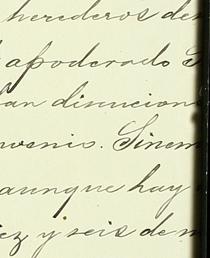 herederos de
apoderado
an disuncion
venio. Sinem
aunque hay
ez y seis de n